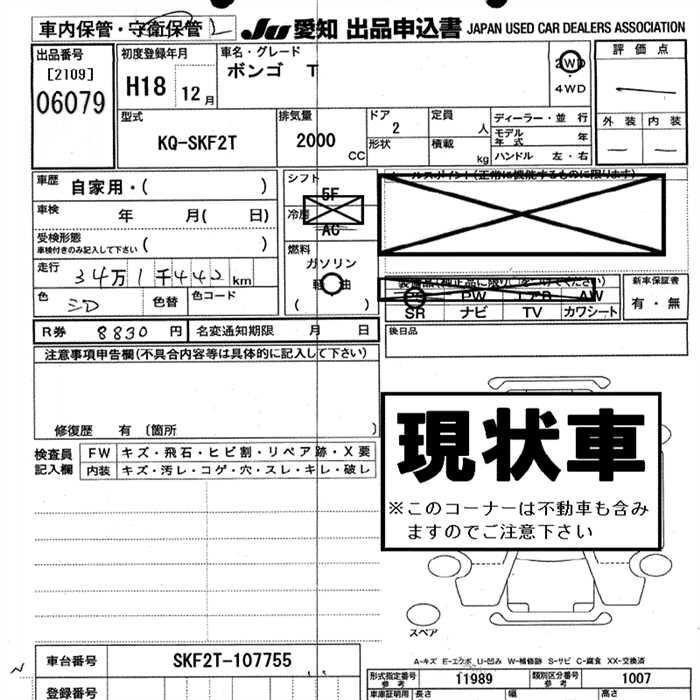 車内保管・守衛保管
JU 愛知 出品申込書 JAPAN USED CAR DEALERS ASSOCIATION
出品番号
[2109]
06079
初度登録年月
H18 12月
車名・グレード
ボンゴ T
2WD
・
4WD
評価点
外装 内装
型式
KQ-SKF2T
排気量
2000 CC
ドア
2
形状
定員
人
積載
kg
ディーラー・並行
モデル年式 年
ハンドル 左・右
車歴 自家用・( )
車検 年 月( 日)
受検形態
車検付きのみ記入して下さい ( )
走行 34万1千442km
色 シロ 色替 色コード
シフト
5F
冷房
AC
燃料
ガソリン
軽油
( )
セールスポイント(正常に機能するものに限ります)
装備品(純正品に限り○をつけてください)
PS PW エアB AW
SR ナビ TV カワシート
新車保証書
有・無
R券 8830円 名変通知期限 月 日
後日品
注意事項申告欄(不具合内容等は具体的に記入して下さい)
修復歴 有 〔箇所 〕
検査員記入欄
FW キズ・飛石・ヒビ割・リペア跡・X要
内装 キズ・汚レ・コゲ・穴・スレ・キレ・破レ
現状車
※このコーナーは不動車も含み
ますのでご注意下さい
スペア
A-キズ E-エクボ U-凹み W-補修跡 S-サビ C-腐食 XX-交換済
車台番号 SKF2T-107755
登録番号
形式指定番号 参考 11989 類別区分番号 参考 1007
車庫証明用 長さ 幅 高さ